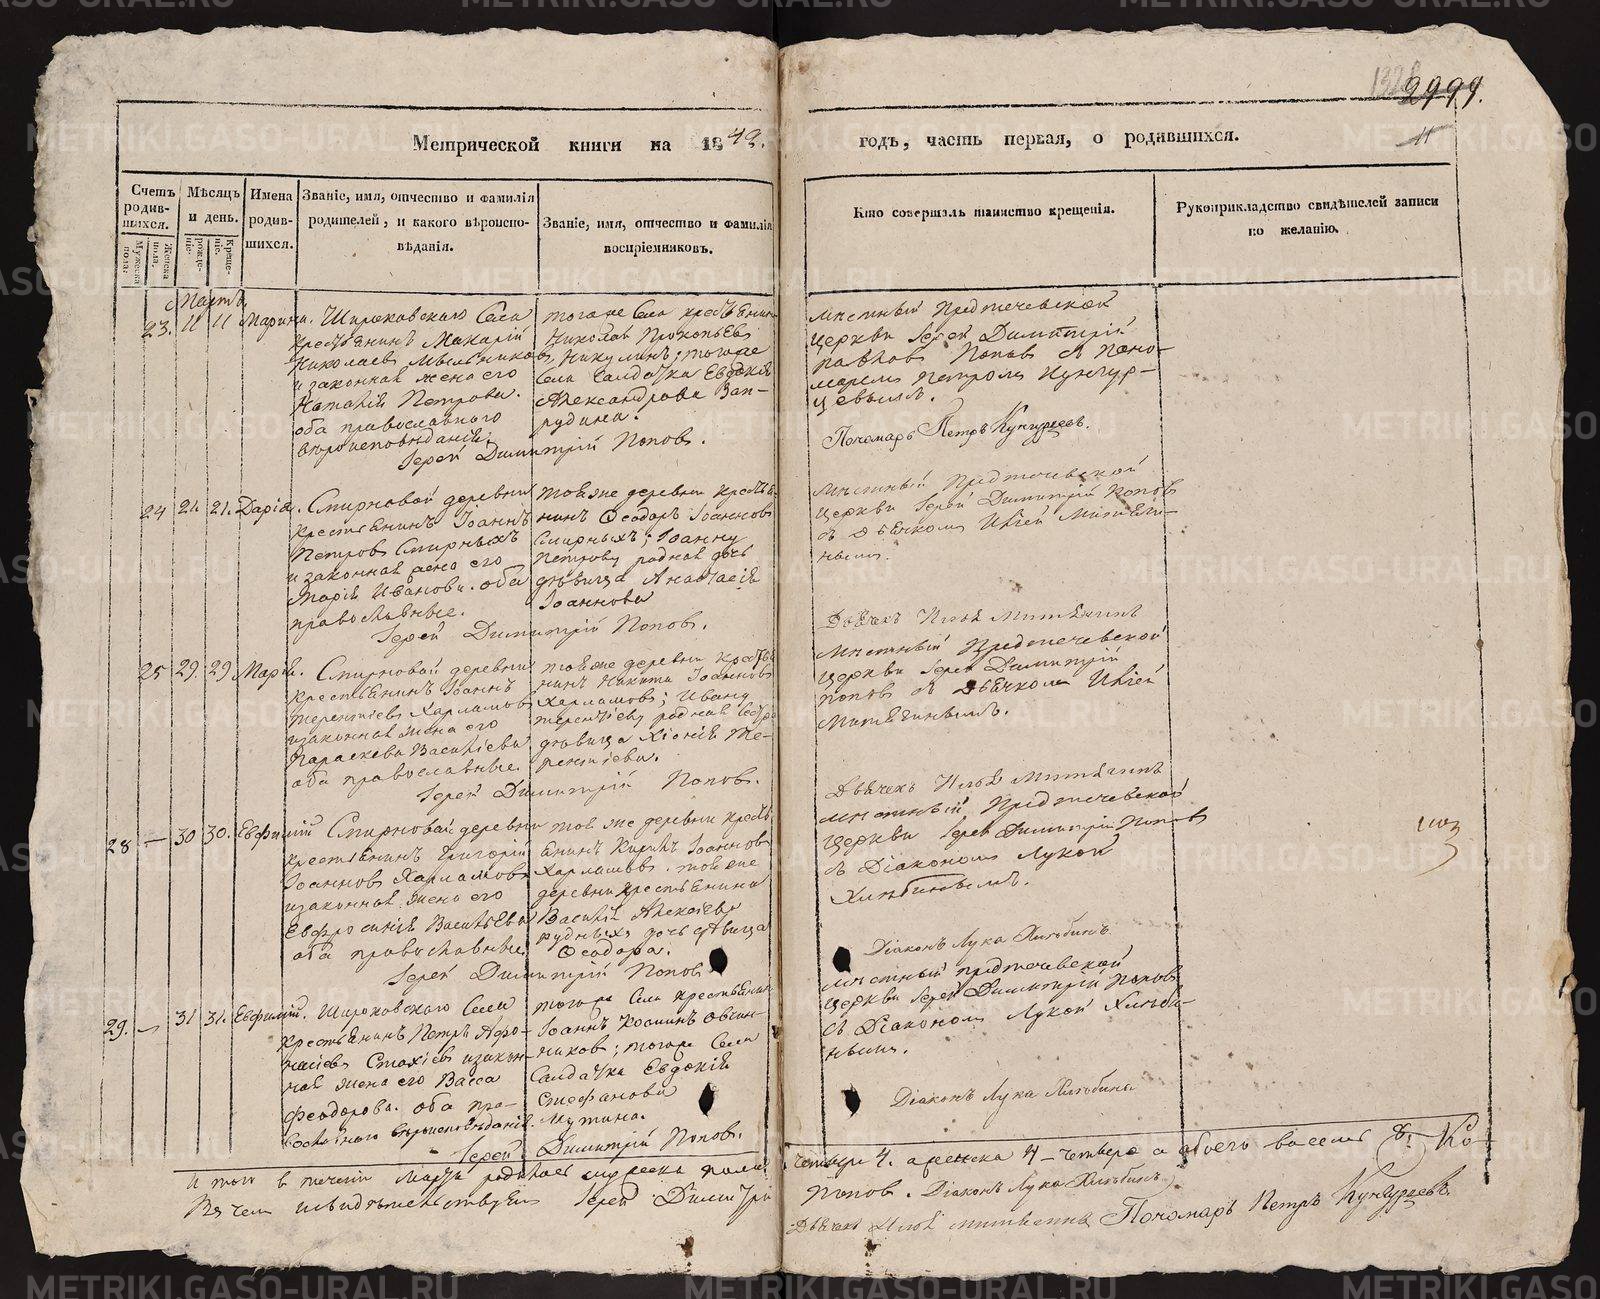 1328
2999.
11
Метрической книги на 1842.
годъ, часть первая, о родившихся.
Счетъ родив-шихся.
Мужеска пола.
Женска пола.
Мѣсяцъ и день.
рожде-ніе.
Креще-ніе.
Имена родив-шихся.
Званіе, имя, отчество и фамилія
родителей, и какого вѣроиспо-
вѣданія.
Званіе, имя, отчество и фамилія
воспріемниковъ.
Кто совершалъ таинство крещенія.
Рукоприкладство свидѣтелей записи
по желанію.
Мартъ
23. 11 11 Марина. Широковскаго Села
крестьянинъ Макарій
Николаевъ Мыльниковъ
и законная жена его
Наталія Петрова.
оба православнаго
вѣроисповѣданія.
тогоже Села крестьянинъ
Николай Прокопьевъ
Никулинъ; тогоже
Села Салдатка Евдокія
Александрова Зап-
рудина.
Іерей Димитрій Поповъ.
Мѣстный Предтечевской
церкви Іерей Димитрій
Павловъ Поповъ съ Поно-
маремъ Петромъ Кунгур-
цевымъ.
Пономарь Петръ Кунгурцевъ.
24 21. 21. Дарія. Смирновой деревни
крестьянинъ Іоаннъ
Петровъ Смирныхъ
и законная жена его
Марія Иванова. оба
православные.
тойже деревни крестья-
нинъ Ѳеодоръ Іоанновъ
Смирныхъ; Іоанну
Петрову родная дочь
дѣвица Анастасія
Іоаннова
Іерей Димитрій Поповъ.
Мѣстный Предтечевской
церкви Іерей Димитрій Поповъ
съ Дьячкомъ Ильей
Дьячекъ Илья
25 29. 29 Марія. Смирновой деревни
крестьянинъ Іоаннъ
Терентіевъ Харламовъ
и законная жена его
Параскева Василіева
оба православные.
тойже деревни крестья-
нинъ Никита Іоанновъ
Харламовъ; Ивану
Терентіеву родная сестра
дѣвица Хіонія Те-
рентіева.
Іерей Димитрій Поповъ.
Мѣстный Предтечевской
церкви Іерей Димитрій
Поповъ съ Дьячкомъ Ильей
Дьячекъ Илья
28 — 30 30. Евфимій Смирновой деревни
крестьянинъ Григорій
Іоанновъ Харламовъ
и законная жена его
Евфросинія Василіева
оба православные.
тойже деревни кресть-
янинъ Кирилъ Іоанновъ
Харламовъ. тойже
деревни крестьянина
Василія Алексіева
Рудныхъ дочь дѣвица
Ѳеодора.
Іерей Димитрій Поповъ
Мѣстный Предтечевской
церкви Іерей Димитрій Поповъ
съ Діакономъ Лукой
Хлѣбинымъ.
Діаконъ Лука Хлѣбинъ
29. — 31 31. Евфимій. Широковскаго Села
крестьянинъ Петръ Афо-
насіевъ Стахіевъ и закон-
ная жена его Васса
Феодорова. оба пра-
вославнаго вѣроисповѣданія.
тогоже Села крестьянинъ
Іоаннъ Косминъ Овчин-
никовъ; тогоже Села
Салдатка Евдокія
Стефанова
Мутина.
Іерей Димитрій Поповъ.
Мѣстный Предтечевской
церкви Іерей Димитрій Поповъ
съ Діакономъ Лукой Хлѣби-
нымъ.
Діаконъ Лука Хлѣбинъ
Итого в теченіи Марта родилось мужеска пола
четверо 4. а женска 4 — четверо а обоего восемь 8.
Въ чемъ и свидѣтельствуемъ Іерей Димитрій
Поповъ. Діаконъ Лука Хлѣбинъ.
Дьячекъ Илья Пономарь Петръ Кунгурцевъ.
METRIKI.GASO-URAL.RU